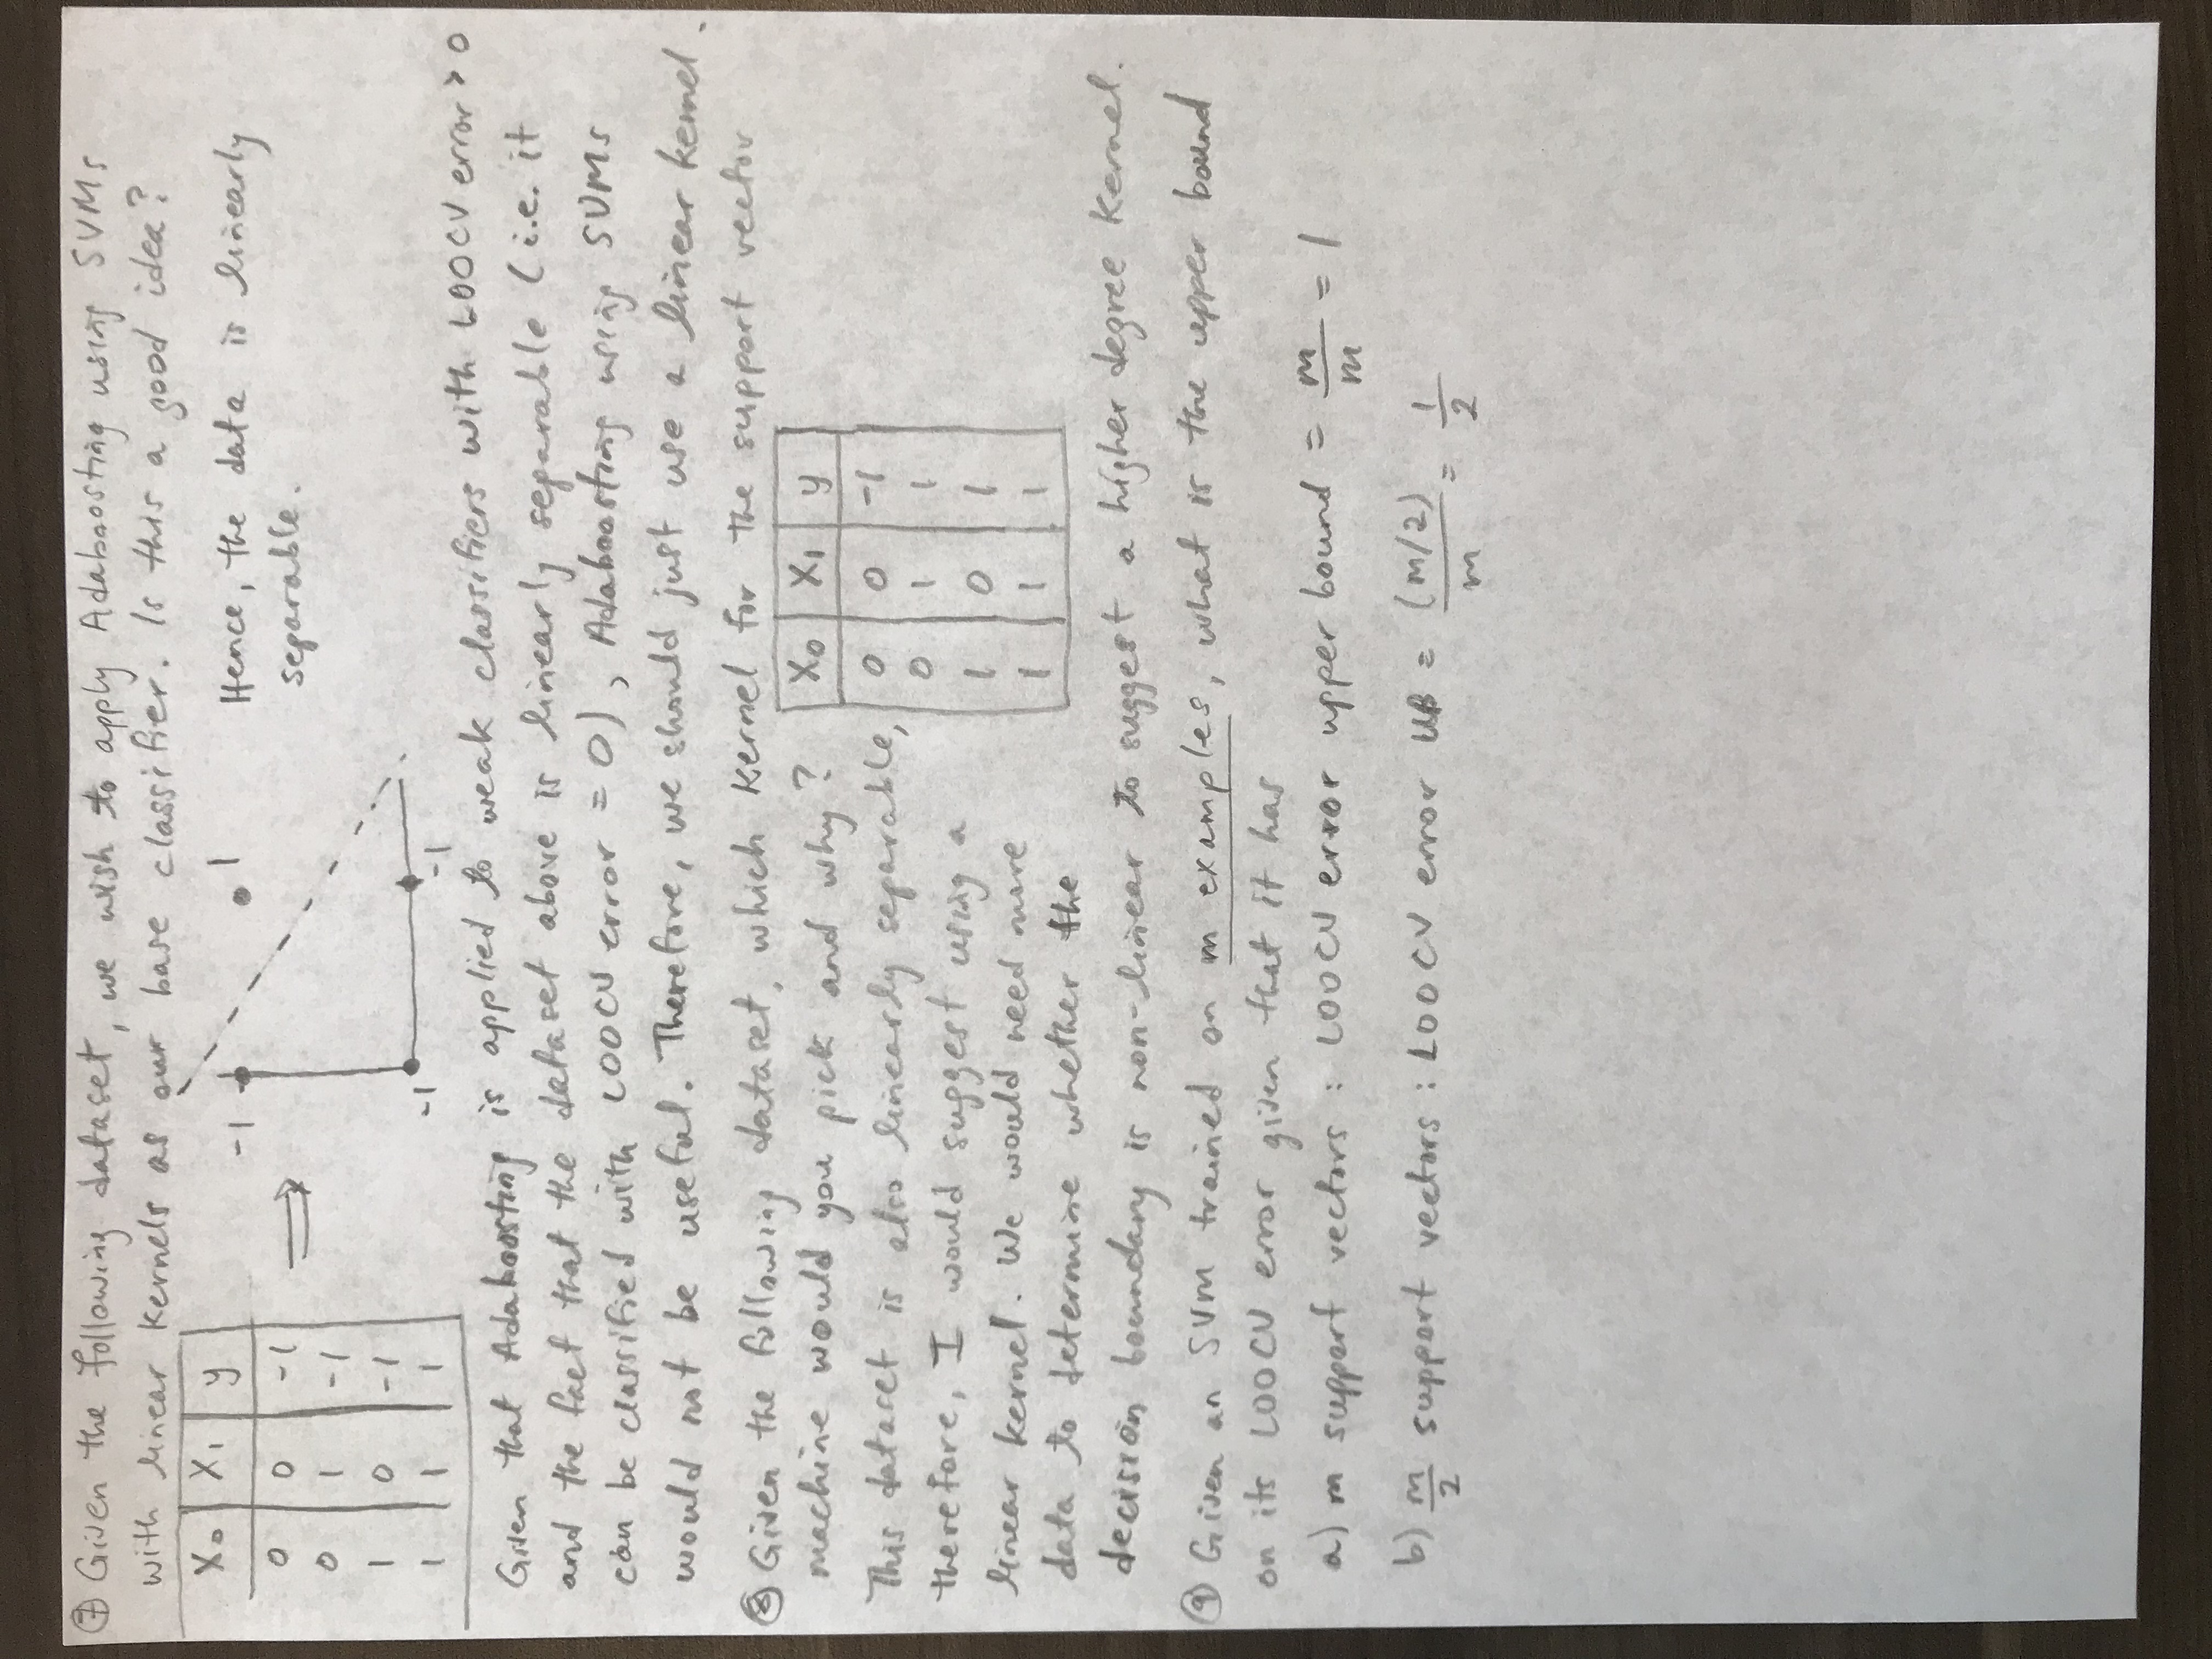 ⑦ Given the following dataset, we wish to apply Adaboosting using SVMs
with linear kernels as our base classifier. Is this a good idea?
X₀ X₁ y
0 0 -1
0 1 -1
1 0 -1
1 1 1
⇒
-1 1
-1 -1
Hence, the data is linearly
separable.
Given that Adaboosting is applied to weak classifiers with LOOCV error > 0
and the fact that the dataset above is linearly separable (i.e. it
can be classified with LOOCV error = 0), Adaboosting using SVMs
would not be useful. Therefore, we should just use a linear kernel.
⑧ Given the following dataset, which kernel for the support vector
machine would you pick and why?
X₀ X₁ y
0 0 -1
0 1 1
1 0 1
1 1 1
This dataset is also linearly separable,
therefore, I would suggest using a
linear kernel. We would need more
data to determine whether the
decision boundary is non-linear to suggest a higher degree kernel.
⑨ Given an SVM trained on m examples, what is the upper bound
on its LOOCV error given that it has
a) m support vectors : LOOCV error upper bound = m/m = 1
b) m/2 support vectors : LOOCV error UB = (m/2)/m = 1/2